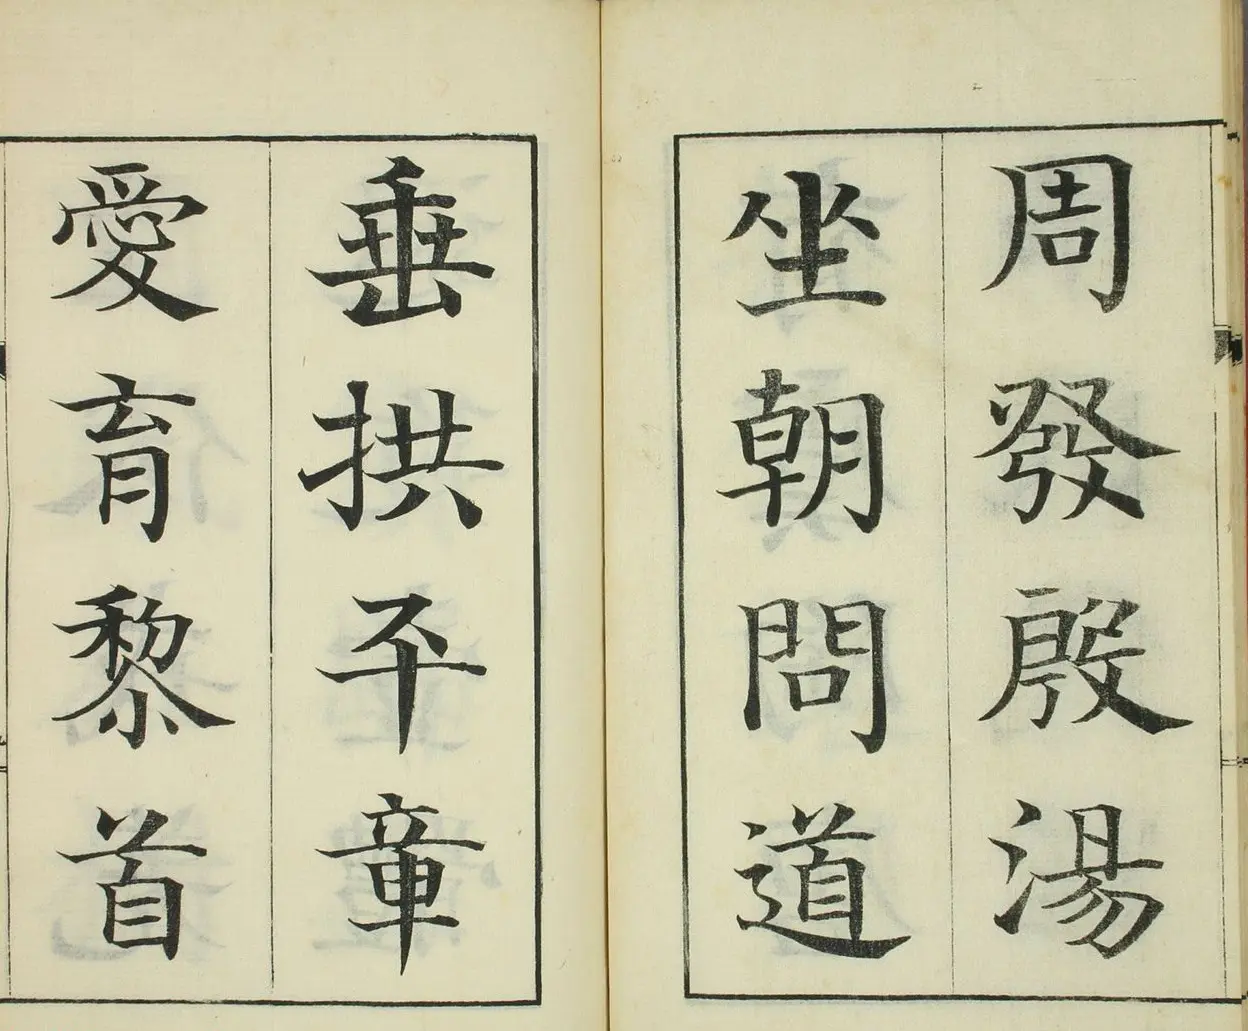 周發殷湯
坐朝問道
垂拱平章
愛育黎首